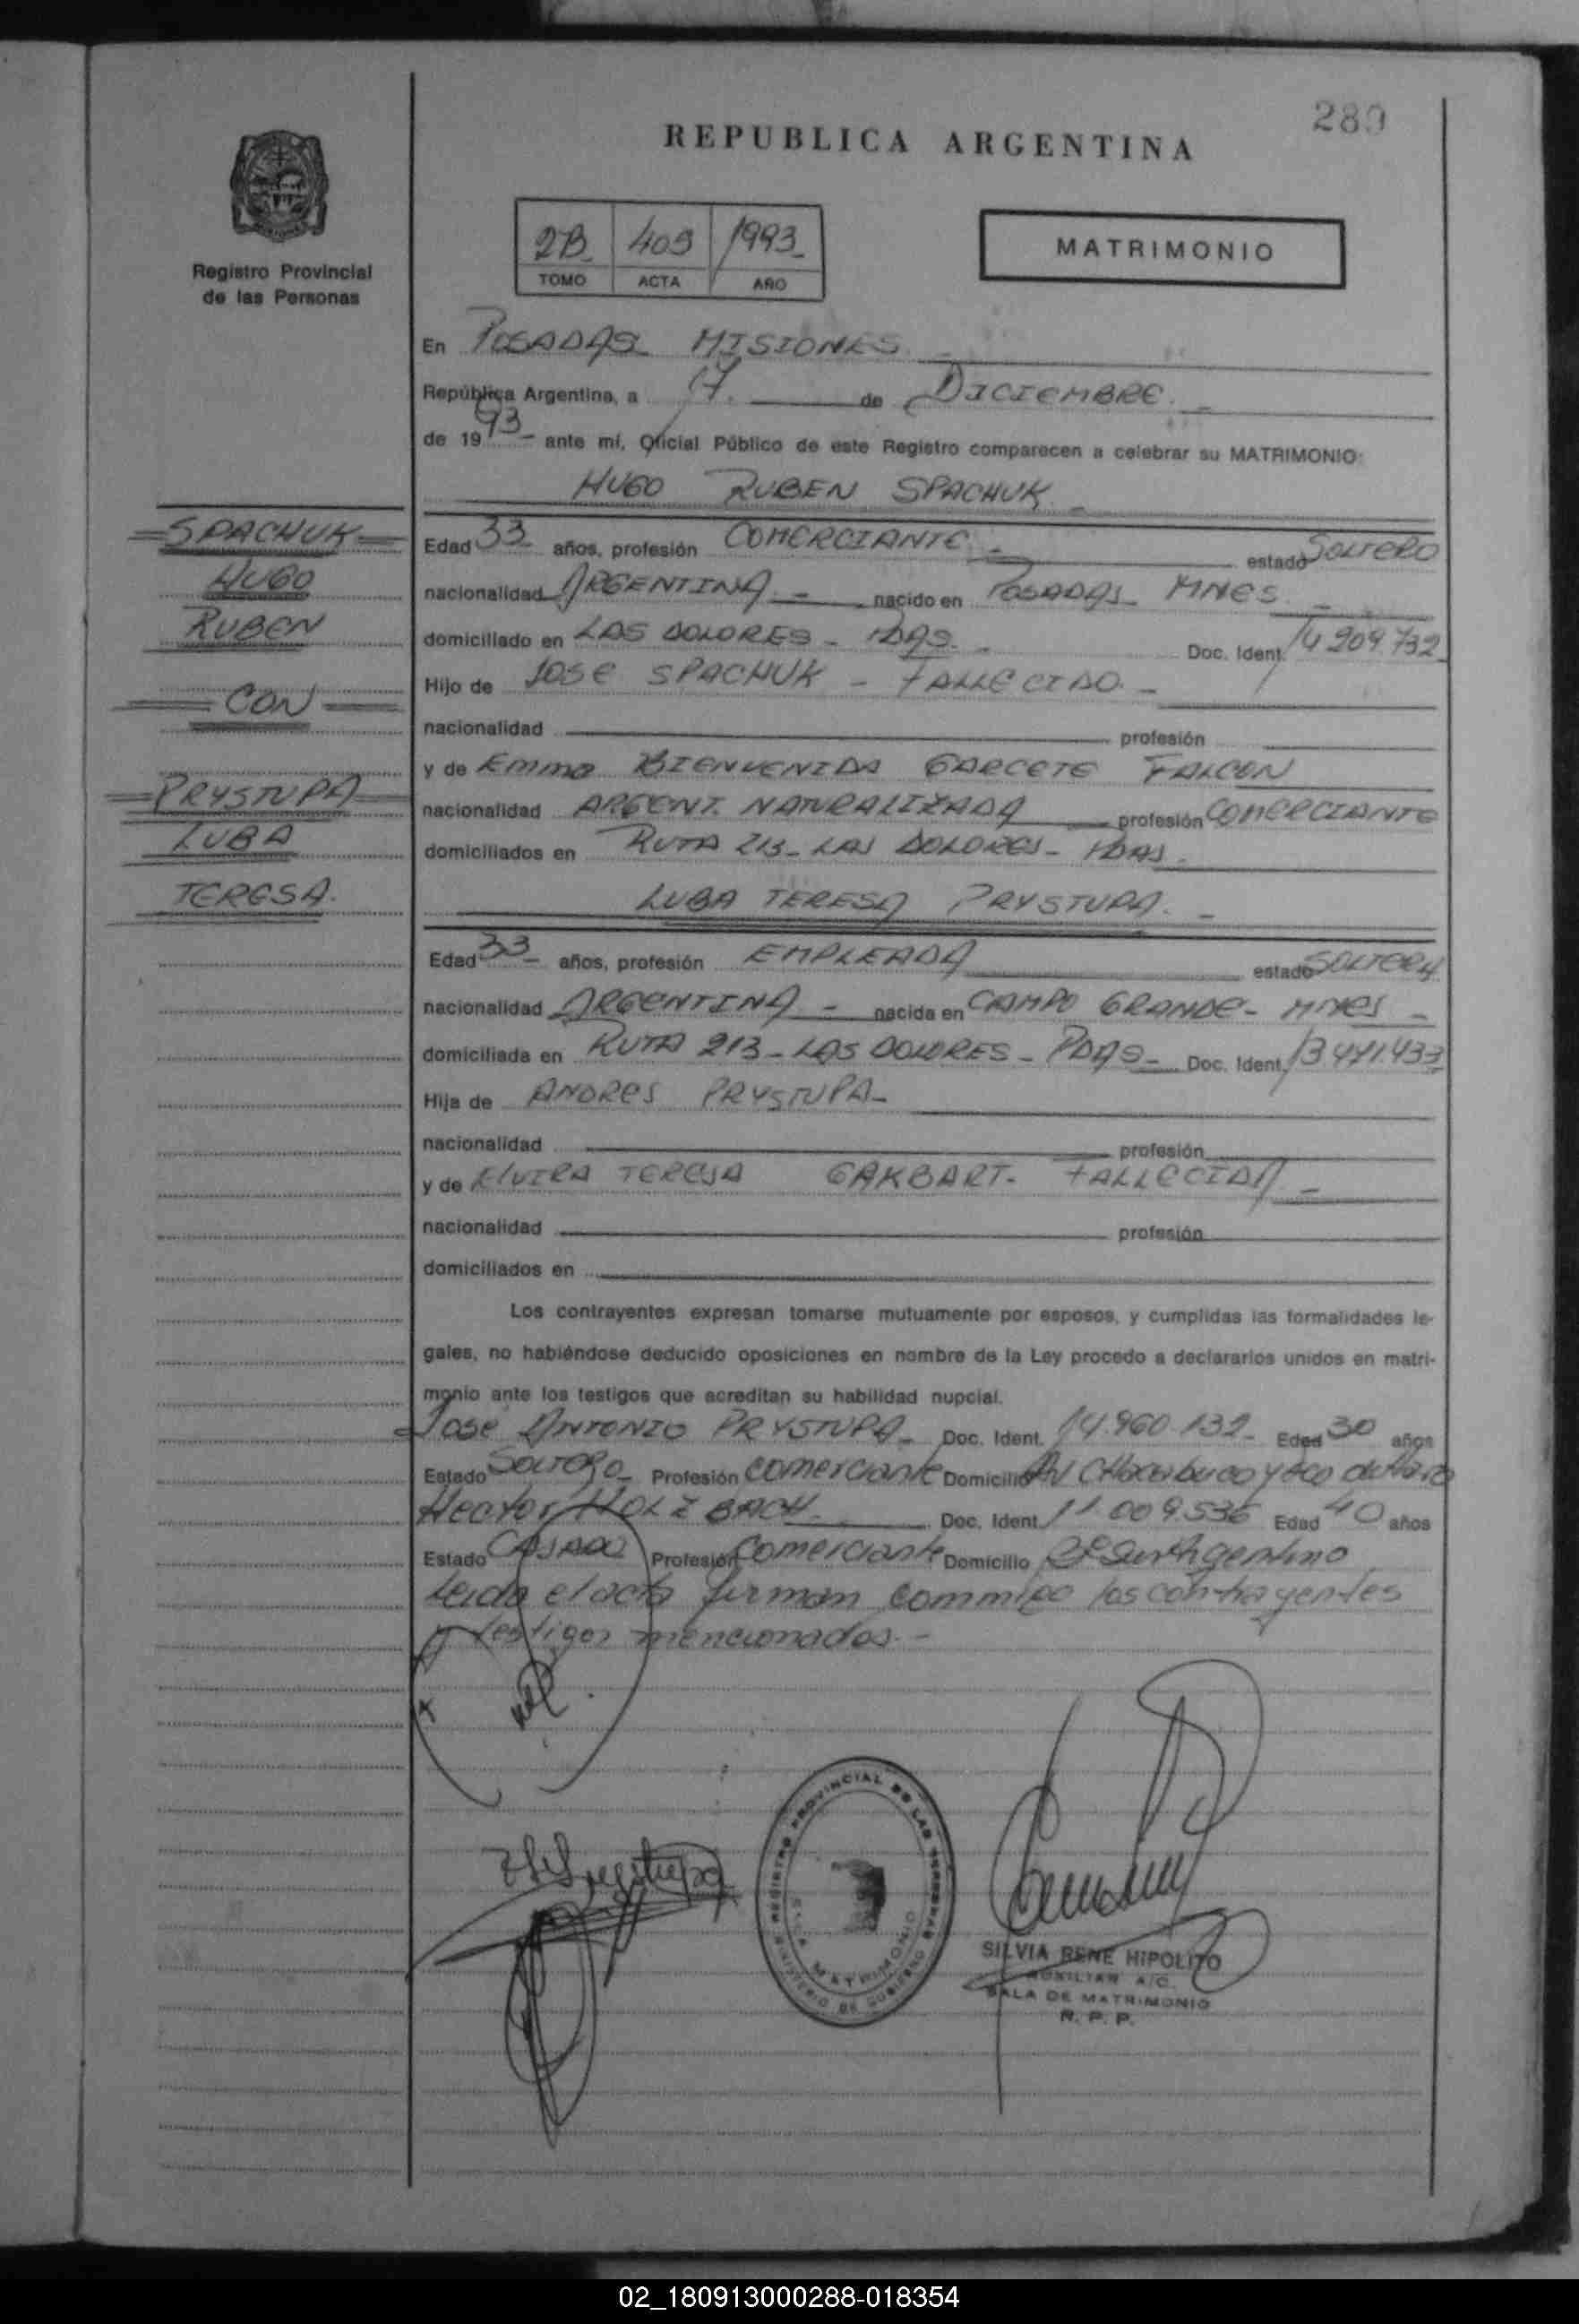 289
REPUBLICA ARGENTINA
Registro Provincial
de las Personas
2B 409 1993
TOMO ACTA AÑO
MATRIMONIO
En POSADAS MISIONES
República Argentina, a 17. de DICIEMBRE.
de 1993 - ante mí, Oficial Público de este Registro comparecen a celebrar su MATRIMONIO:
HUGO RUBEN SPACHUK
SPACHUK
HUGO
RUBEN
CON
PRYSTUPA
LUBA
TERESA.
Edad 33 años, profesión COMERCIANTE estado SOLTERO
nacionalidad ARGENTINA. - nacido en POSADAS MNES.
domiciliado en LAS DOLORES - PDAS. Doc. Ident. 14.209.732
Hijo de JOSE SPACHUK - FALLECIDO. -
nacionalidad profesión
y de Emma BIENVENIDA GARCETE FALCON
nacionalidad ARGENT. NATURALIZADA profesión COMERCIANTE
domiciliados en RUTA 213 - LAS DOLORES - PDAS.
LUBA TERESA PRYSTUPA. -
Edad 33 - años, profesión EMPLEADA estado SOLTERA
nacionalidad ARGENTINA - nacida en CAMPO GRANDE - MNES -
domiciliada en RUTA 213 - LAS DOLORES - PDAS - Doc. Ident. 13.471.433
Hija de ANDRES PRYSTUPA -
nacionalidad profesión
y de ELVIRA TERESA GAKBART - FALLECIDA -
nacionalidad profesión
domiciliados en
Los contrayentes expresan tomarse mutuamente por esposos, y cumplidas las formalidades le-
gales, no habiéndose deducido oposiciones en nombre de la Ley procedo a declararlos unidos en matri-
monio ante los testigos que acreditan su habilidad nupcial.
Jose ANTONIO PRYSTUPA - Doc. Ident. 14.960.132 - Edad 30 años
Estado Soltero - Profesión Comerciante Domicilio Av Chacabuco y
Hector HOLZBACH Doc. Ident. 11.009.536 Edad 40 años
Estado CASADO Profesión Comerciante Domicilio Argentino
Leida el acta firman conmigo los contrayentes
y testigos mencionados. -
REGISTRO PROVINCIAL DE LAS PERSONAS
SALA MATRIMONIO
MINISTERIO DE GOBIERNO
SILVIA RENE HIPOLITO
AUXILIAR A/C.
SALA DE MATRIMONIO
R. P. P.
02_180913000288-018354